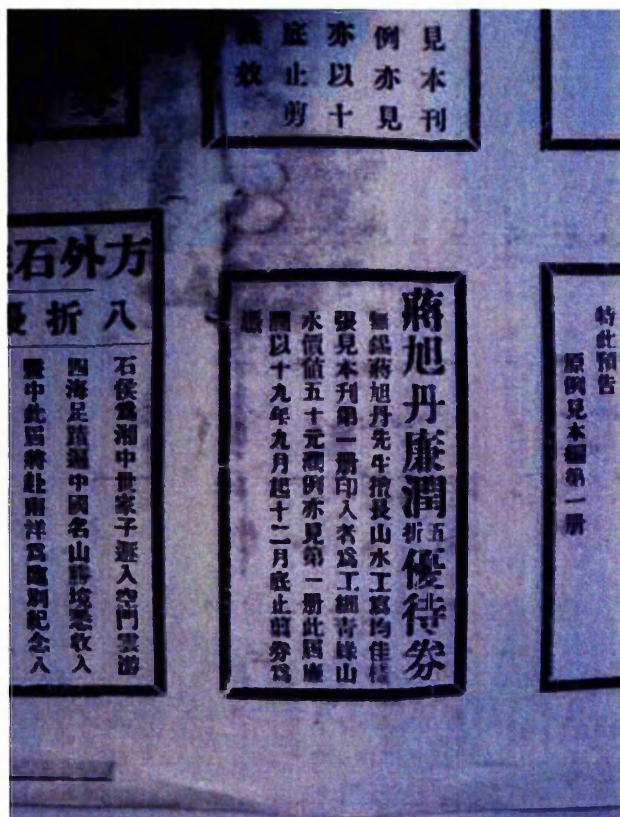 見本刊
例亦見
亦以十
底止剪
效
特此預告
原例見本編第一册
蔣旭丹廉潤五折優待券
無錫蔣旭丹先生擅長山水工寫均佳樣
張見本刊第一册印入者爲工細青綠山
水價值五十元潤例亦見第一册此届廉
潤以十九年九月起十二月底止剪券爲
憑
方外石
八折
石侯爲湘中世家子遯入空門雲游
四海足蹟遍中國名山勝境悉收入
囊中此届將赴南洋爲臨別紀念八